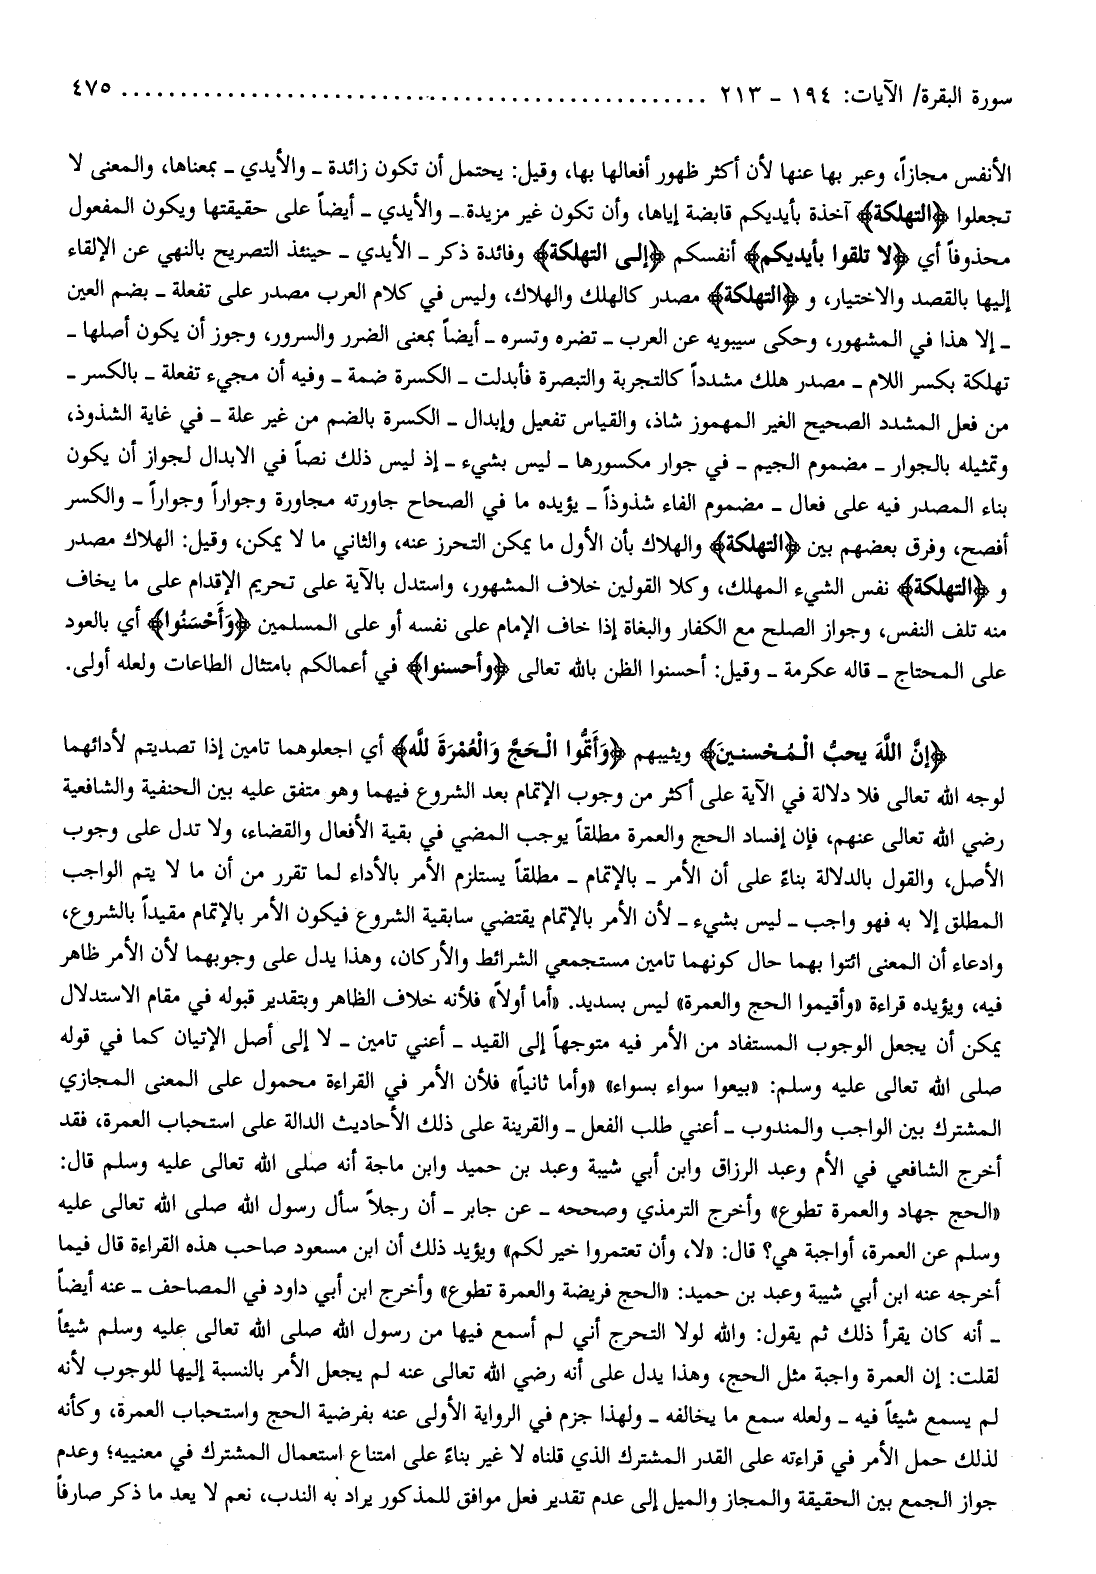 سورة البقرة/ الآيات: ١٩٤ ـ ٢١٣ ................................................ ٤٧٥
الأنفس مجازاً، وعبر بها عنها لأن أكثر ظهور أفعالها بها، وقيل: يحتمل أن تكون زائدة ـ والأيدي ـ بمعناها، والمعنى لا
تجعلوا ﴿التهلكة﴾ آخذة بأيديكم قابضة إياها، وأن تكون غير مزيدة ـ والأيدي ـ أيضاً على حقيقتها ويكون المفعول
محذوفاً أي ﴿لا تلقوا بأيديكم﴾ أنفسكم ﴿إلى التهلكة﴾ وفائدة ذكر ـ الأيدي ـ حينئذ التصريح بالنهي عن الإلقاء
إليها بالقصد والاختيار، و ﴿التهلكة﴾ مصدر كالهلك والهلاك، وليس في كلام العرب مصدر على تفعلة ـ بضم العين
ـ إلا هذا في المشهور، وحكى سيبويه عن العرب ـ تضره وتسره ـ أيضاً بمعنى الضرر والسرور، وجوز أن يكون أصلها ـ
تهلكة بكسر اللام ـ مصدر هلك مشدداً كالتجربة والتبصرة فأبدلت ـ الكسرة ضمة ـ وفيه أن مجيء تفعلة ـ بالكسر ـ
من فعل المشدد الصحيح الغير المهموز شاذ، والقياس تفعيل وإبدال ـ الكسرة بالضم من غير علة ـ في غاية الشذوذ،
وتمثيله بالجوار ـ مضموم الجيم ـ في جوار مكسورها ـ ليس بشيء ـ إذ ليس ذلك نصاً في الابدال لجواز أن يكون
بناء المصدر فيه على فعال ـ مضموم الفاء شذوذاً ـ يؤيده ما في الصحاح جاورته مجاورة وجواراً وجواراً ـ والكسر
أفصح، وفرق بعضهم بين ﴿التهلكة﴾ والهلاك بأن الأول ما يمكن التحرز عنه، والثاني ما لا يمكن، وقيل: الهلاك مصدر
و ﴿التهلكة﴾ نفس الشيء المهلك، وكلا القولين خلاف المشهور، واستدل بالآية على تحريم الإقدام على ما يخاف
منه تلف النفس، وجواز الصلح مع الكفار والبغاة إذا خاف الإمام على نفسه أو على المسلمين ﴿وَأَحْسَنُوا﴾ أي بالعود
على المحتاج ـ قاله عكرمة ـ وقيل: أحسنوا الظن بالله تعالى ﴿وأحسنوا﴾ في أعمالكم بامتثال الطاعات ولعله أولى.
﴿إنَّ اللَّهَ يحبُّ الْمُحْسنينَ﴾ ويثيبهم ﴿وَأَتمُّوا الْحَجَّ وَالْعُمْرَةَ للَّه﴾ أي اجعلوهما تامين إذا تصديتم لأدائهما
لوجه الله تعالى فلا دلالة في الآية على أكثر من وجوب الإتمام بعد الشروع فيهما وهو متفق عليه بين الحنفية والشافعية
رضي الله تعالى عنهم، فإن إفساد الحج والعمرة مطلقاً يوجب المضي في بقية الأفعال والقضاء، ولا تدل على وجوب
الأصل، والقول بالدلالة بناءً على أن الأمر ـ بالإتمام ـ مطلقاً يستلزم الأمر بالأداء لما تقرر من أن ما لا يتم الواجب
المطلق إلا به فهو واجب ـ ليس بشيء ـ لأن الأمر بالإتمام يقتضي سابقية الشروع فيكون الأمر بالإتمام مقيداً بالشروع،
وادعاء أن المعنى ائتوا بهما حال كونهما تامين مستجمعي الشرائط والأركان، وهذا يدل على وجوبهما لأن الأمر ظاهر
فيه، ويؤيده قراءة «وأقيموا الحج والعمرة» ليس بسديد. «أما أولاً» فلأنه خلاف الظاهر وبتقدير قبوله في مقام الاستدلال
يمكن أن يجعل الوجوب المستفاد من الأمر فيه متوجهاً إلى القيد ـ أعني تامين ـ لا إلى أصل الإتيان كما في قوله
صلى الله تعالى عليه وسلم: «بيعوا سواء بسواء» «وأما ثانياً» فلأن الأمر في القراءة محمول على المعنى المجازي
المشترك بين الواجب والمندوب ـ أعني طلب الفعل ـ والقرينة على ذلك الأحاديث الدالة على استحباب العمرة، فقد
أخرج الشافعي في الأم وعبد الرزاق وابن أبي شيبة وعبد بن حميد وابن ماجة أنه صلى الله تعالى عليه وسلم قال:
«الحج جهاد والعمرة تطوع» وأخرج الترمذي وصححه ـ عن جابر ـ أن رجلاً سأل رسول الله صلى الله تعالى عليه
وسلم عن العمرة، أواجبة هي؟ قال: «لا، وأن تعتمروا خير لكم» ويؤيد ذلك أن ابن مسعود صاحب هذه القراءة قال فيما
أخرجه عنه ابن أبي شيبة وعبد بن حميد: «الحج فريضة والعمرة تطوع» وأخرج ابن أبي داود في المصاحف ـ عنه أيضاً
ـ أنه كان يقرأ ذلك ثم يقول: والله لولا التحرج أني لم أسمع فيها من رسول الله صلى الله تعالى عليه وسلم شيئاً
لقلت: إن العمرة واجبة مثل الحج، وهذا يدل على أنه رضي الله تعالى عنه لم يجعل الأمر بالنسبة إليها للوجوب لأنه
لم يسمع شيئاً فيه ـ ولعله سمع ما يخالفه ـ ولهذا جزم في الرواية الأولى عنه بفرضية الحج واستحباب العمرة، وكأنه
لذلك حمل الأمر في قراءته على القدر المشترك الذي قلناه لا غير بناءً على امتناع استعمال المشترك في معنييه؛ وعدم
جواز الجمع بين الحقيقة والمجاز والميل إلى عدم تقدير فعل موافق للمذكور يراد به الندب، نعم لا يعد ما ذكر صارفاً